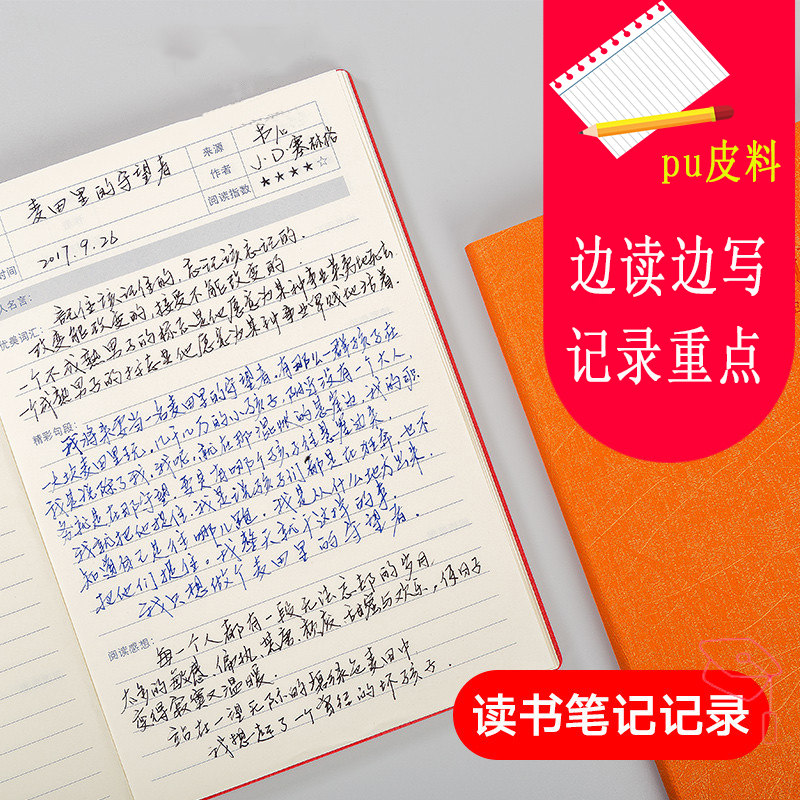 pu皮料
边读边写
记录重点
来源
书心
麦田里的守望者
作者
J.D塞林格
阅读指数
★★★★☆
时间
2017.9.26
人名言：
记住该记住的，忘记该忘记的。
改变能改变的，接受不能改变的。
优美词汇：
一个不成熟男子的标志是他愿意为某种事业英勇地死去
一个成熟男子的标志是他愿意为某种事业卑贱地活着.
精彩句段：
我将来要当一名麦田里的守望者，有那么一群孩子在
一大块麦田里玩，几千几万的小孩子，附近没有一个大人，
我是说除了我，我呢，就在那混帐的悬崖边，我的职
务就是在那守望，要是有哪个孩子往悬崖边来，
我就把他捉住，我是说孩子们都是在狂奔，也不
知道自己是在往哪儿跑，我是从什么地方出来，
把他们捉住。我整天就干这样的事，
我只想做个麦田里的守望者.
阅读感想：
每一个人都有一段无法忘却的岁月
太多的敏感、偏执，
甜蜜与欢乐，使日子
变得寂寞又温暖.
站在一望无际的碧绿色麦田中
我想起了一个曾经的坏孩子.
读书笔记记录